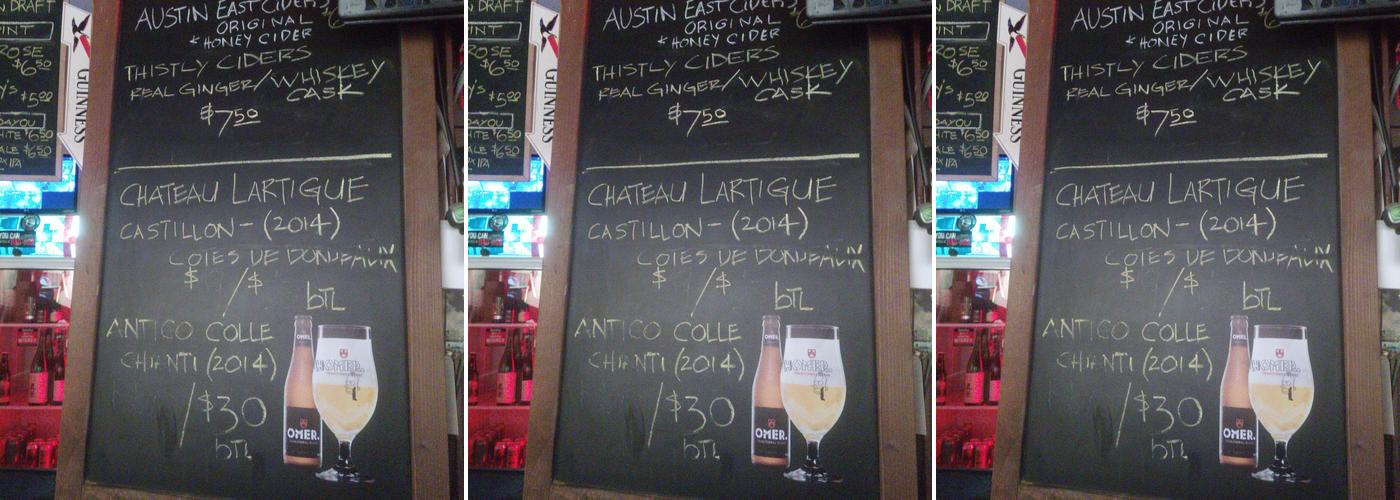 DRAFT
ROSE
$6.50
$5.00
$6.50
$6.50
GUINNESS
YOU CAN
AUSTIN EASTCIDERS
ORIGINAL
* HONEY CIDER
THISTLY CIDERS
REAL GINGER/WHISKEY
CASK
$7.50
CHATEAU LARTIGUE
CASTILLON - (2014)
COTES DE
$ / $
BTL
ANTICO COLLE
CHIANTI (2014)
/$30
BTL
OMER.
OMER.
DRAFT
ROSE
$6.50
$5.00
$6.50
$6.50
GUINNESS
YOU CAN
AUSTIN EASTCIDERS
ORIGINAL
* HONEY CIDER
THISTLY CIDERS
REAL GINGER/WHISKEY
CASK
$7.50
CHATEAU LARTIGUE
CASTILLON - (2014)
COTES DE
$ / $
BTL
ANTICO COLLE
CHIANTI (2014)
/$30
BTL
OMER.
OMER.
DRAFT
ROSE
$6.50
$5.00
$6.50
$6.50
GUINNESS
YOU CAN
AUSTIN EASTCIDERS
ORIGINAL
* HONEY CIDER
THISTLY CIDERS
REAL GINGER/WHISKEY
CASK
$7.50
CHATEAU LARTIGUE
CASTILLON - (2014)
COTES DE
$ / $
BTL
ANTICO COLLE
CHIANTI (2014)
/$30
BTL
OMER.
OMER.